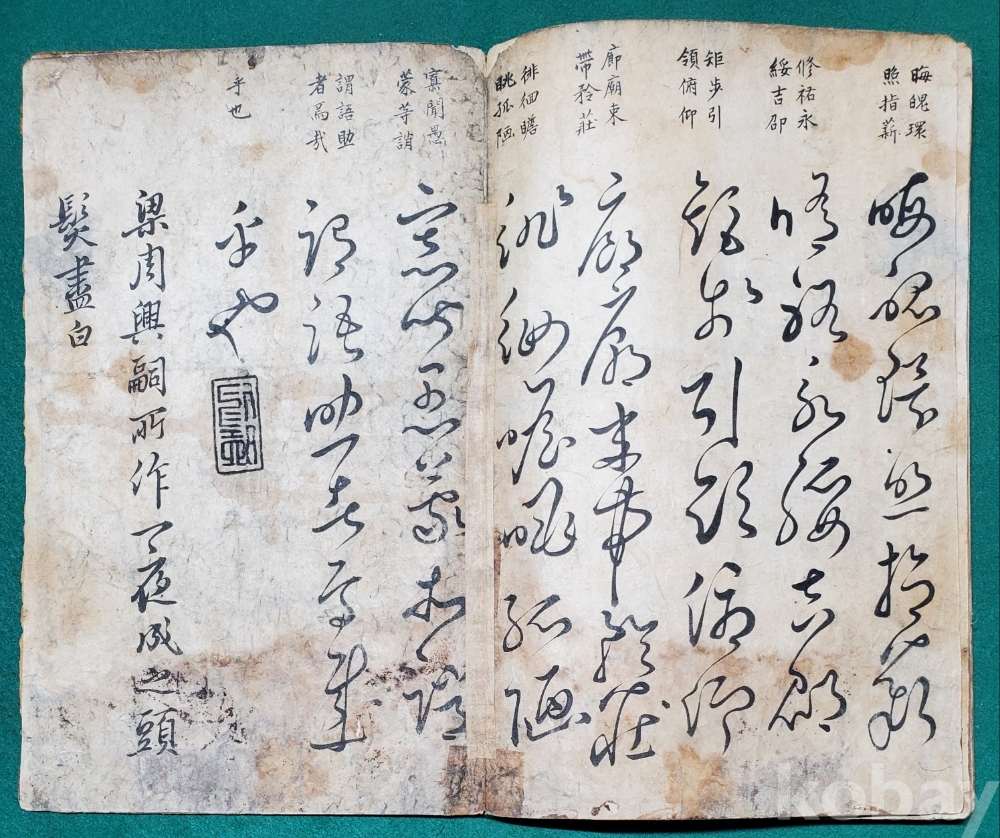 晦魄環
照指薪
修祐永
綏吉邵
矩步引
領俯仰
廊廟束
帶矜莊
徘徊瞻
眺孤陋
寡聞愚
蒙等誚
謂語助
者焉哉
乎也
晦魄環照指薪
修祐永綏吉邵
矩步引領俯仰
廊廟束帶矜莊
徘徊瞻眺孤陋
寡聞愚蒙等誚
謂語助者焉哉
乎也
梁周興嗣所作一夜成之頭
髮盡白
kobay